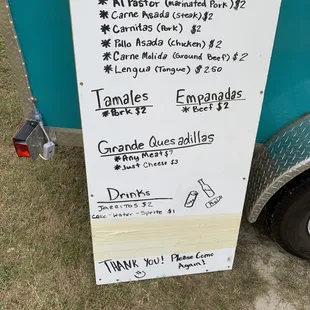 * Al Pastor (marinated Pork) $2
* Carne Asada (steak) $2
* Carnitas (Pork) $2
* Pollo Asada (chicken) $2
* Carne Molida (Ground Beef) $2
* Lengua (Tongue) $2.50
Tamales
* Pork $2
Empanadas
* Beef $2
Grande Quesadillas
* Any Meat $7
* Just Cheese $3
Drinks
Jarritos $2
Coke - Water - Sprite $1
THANK YOU! Please Come
Again!